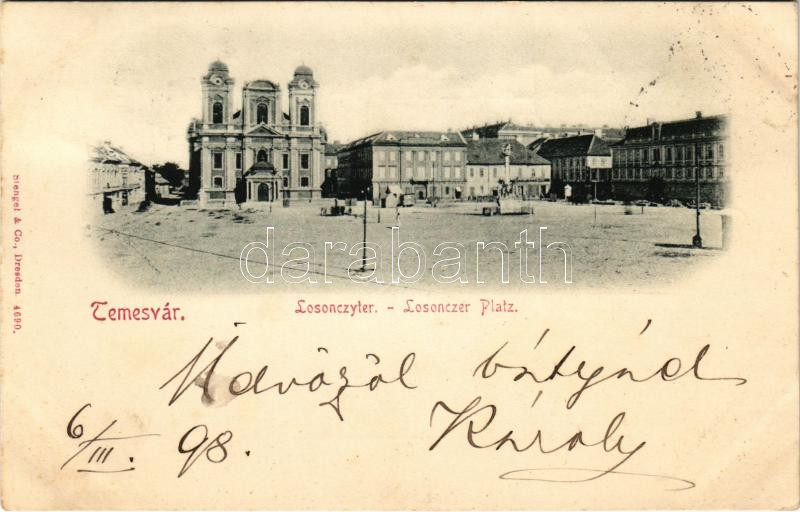 darabanth
Stengel & Co., Dresden 4690.
Temesvár.
Losonczyter. - Losonczer Platz.
Üdvözöl bátyád
6/III. 98.
Károly